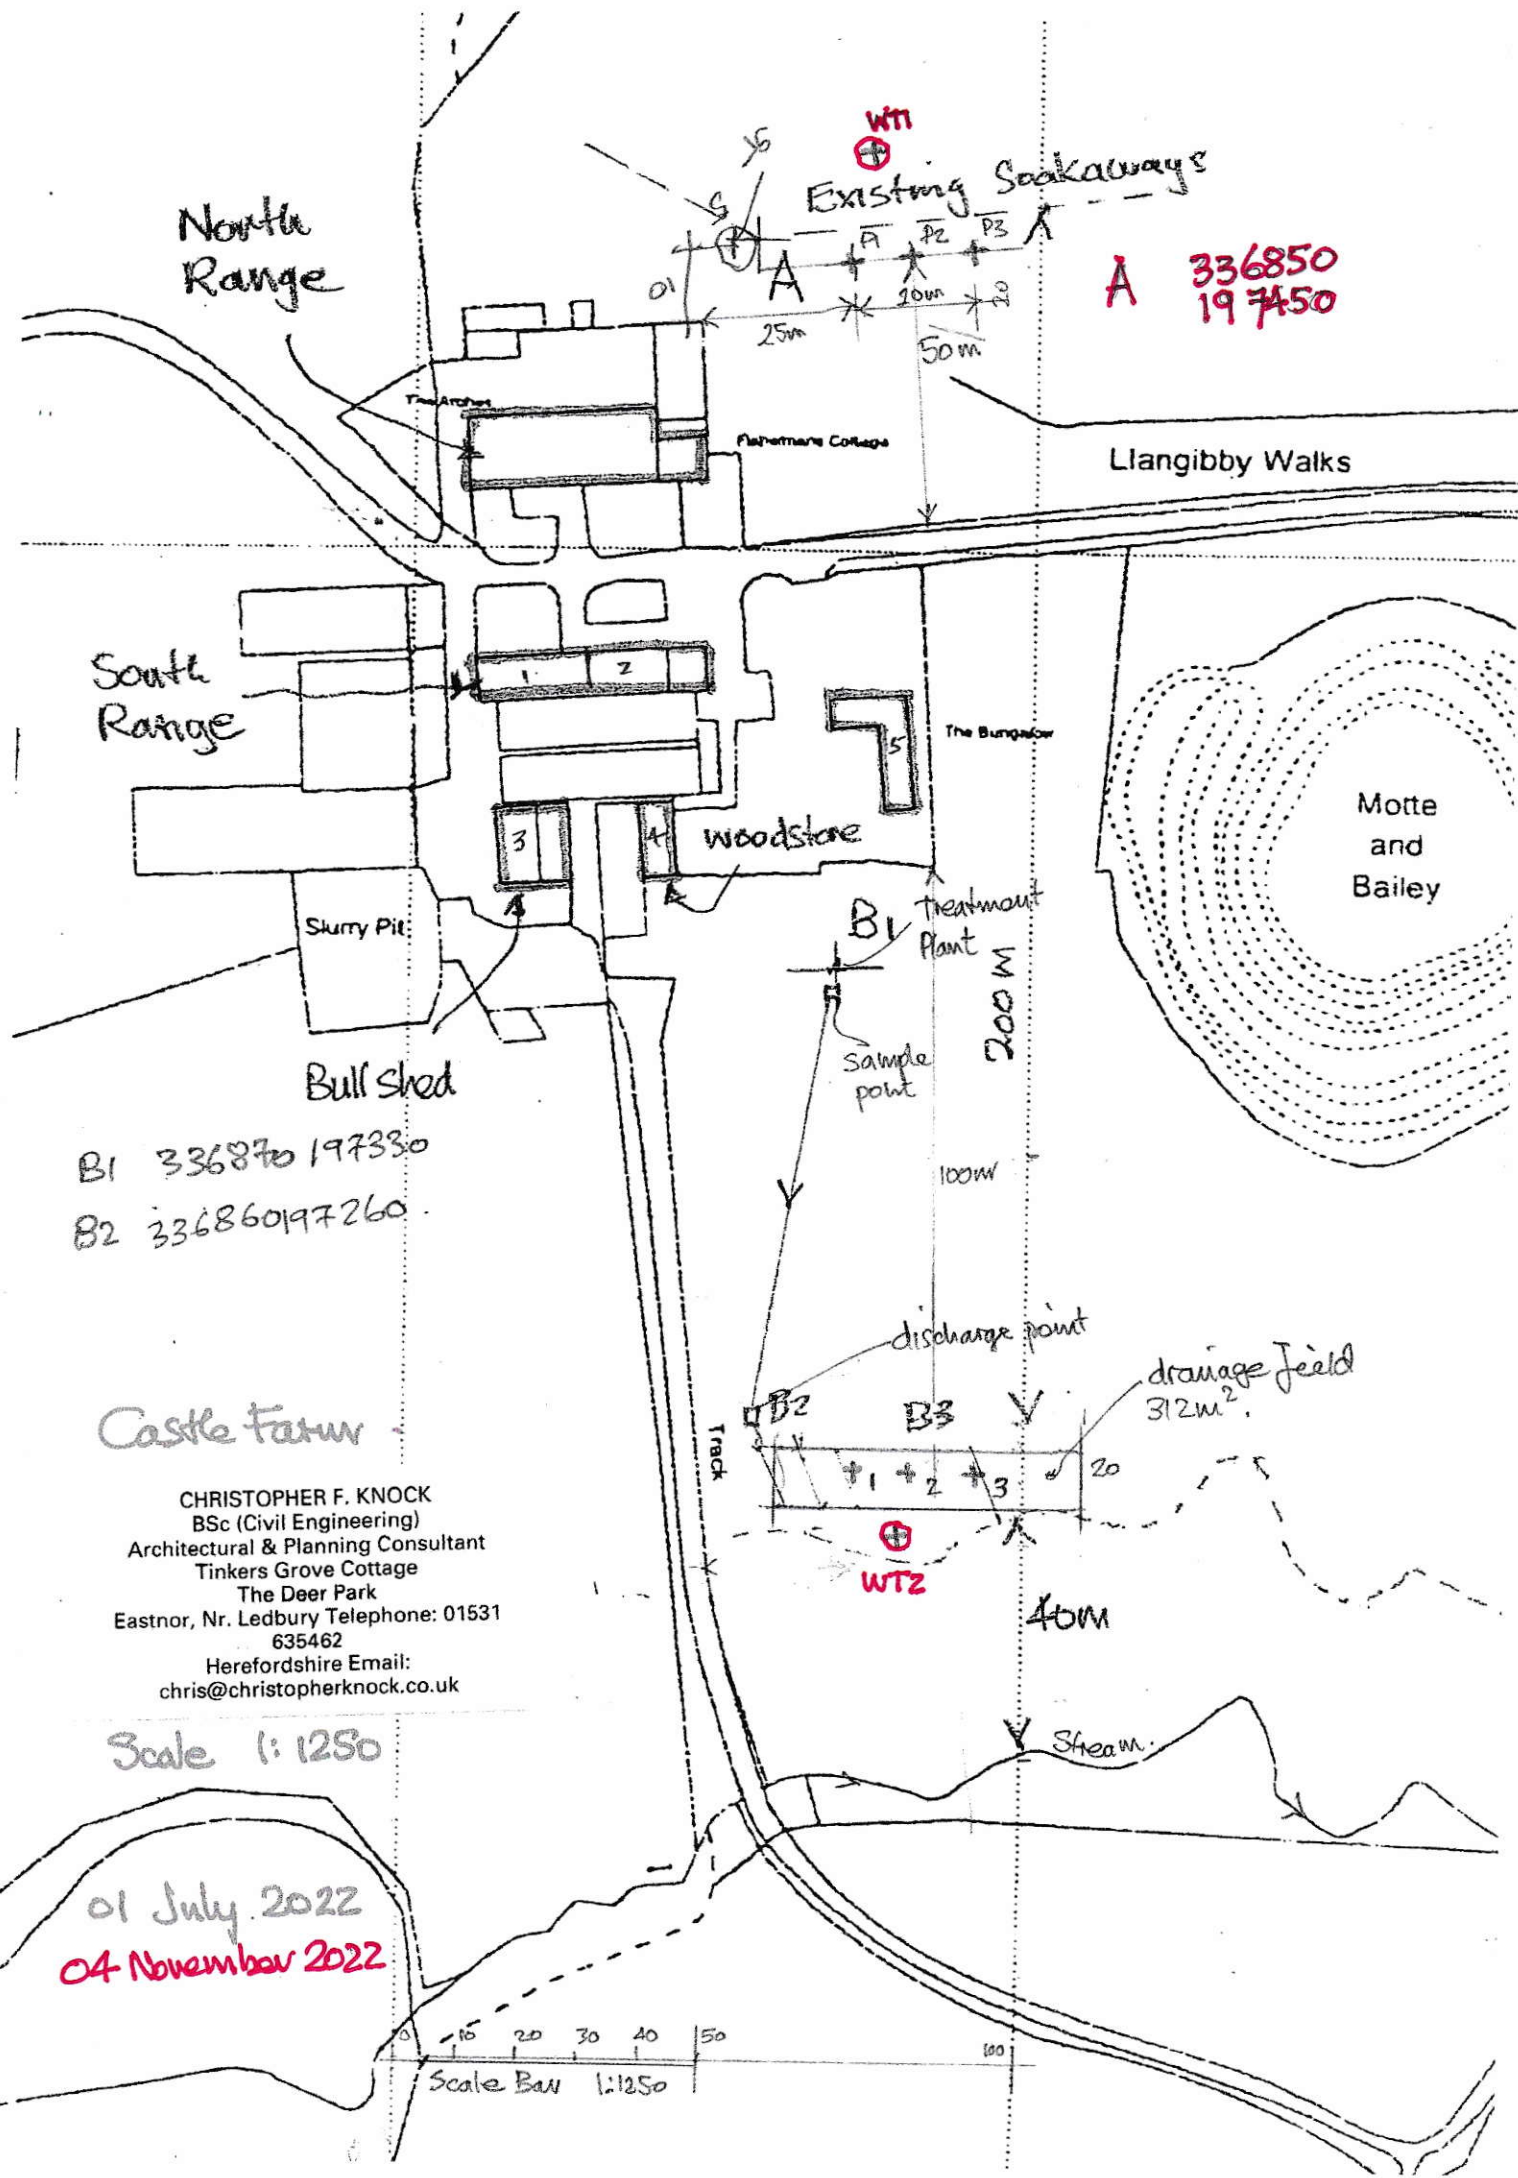 WT1
Existing Soakaways
North
Range
5
P1 P2 P3
A
A 336850
197450
10
20m
20
25m
50m
The Arches
Fishermans Cottage
Llangibby Walks
South
Range
1 2
5
The Bungalow
Motte
and
Bailey
3
4
Woodstore
Slurry Pit
B1 Treatment
Plant
200M
Sample
point
Bull Shed
B1 336870 197330
B2 336860197260.
100m
discharge point
drainage field
312m².
B2 B3
Track
1 2 3
20
WT2
40m
Castle Farm
CHRISTOPHER F. KNOCK
BSc (Civil Engineering)
Architectural & Planning Consultant
Tinkers Grove Cottage
The Deer Park
Eastnor, Nr. Ledbury Telephone: 01531
635462
Herefordshire Email:
chris@christopherknock.co.uk
Stream.
Scale 1:1250
01 July 2022
04 November 2022
0 10 20 30 40 50
100
Scale Bar 1:1250